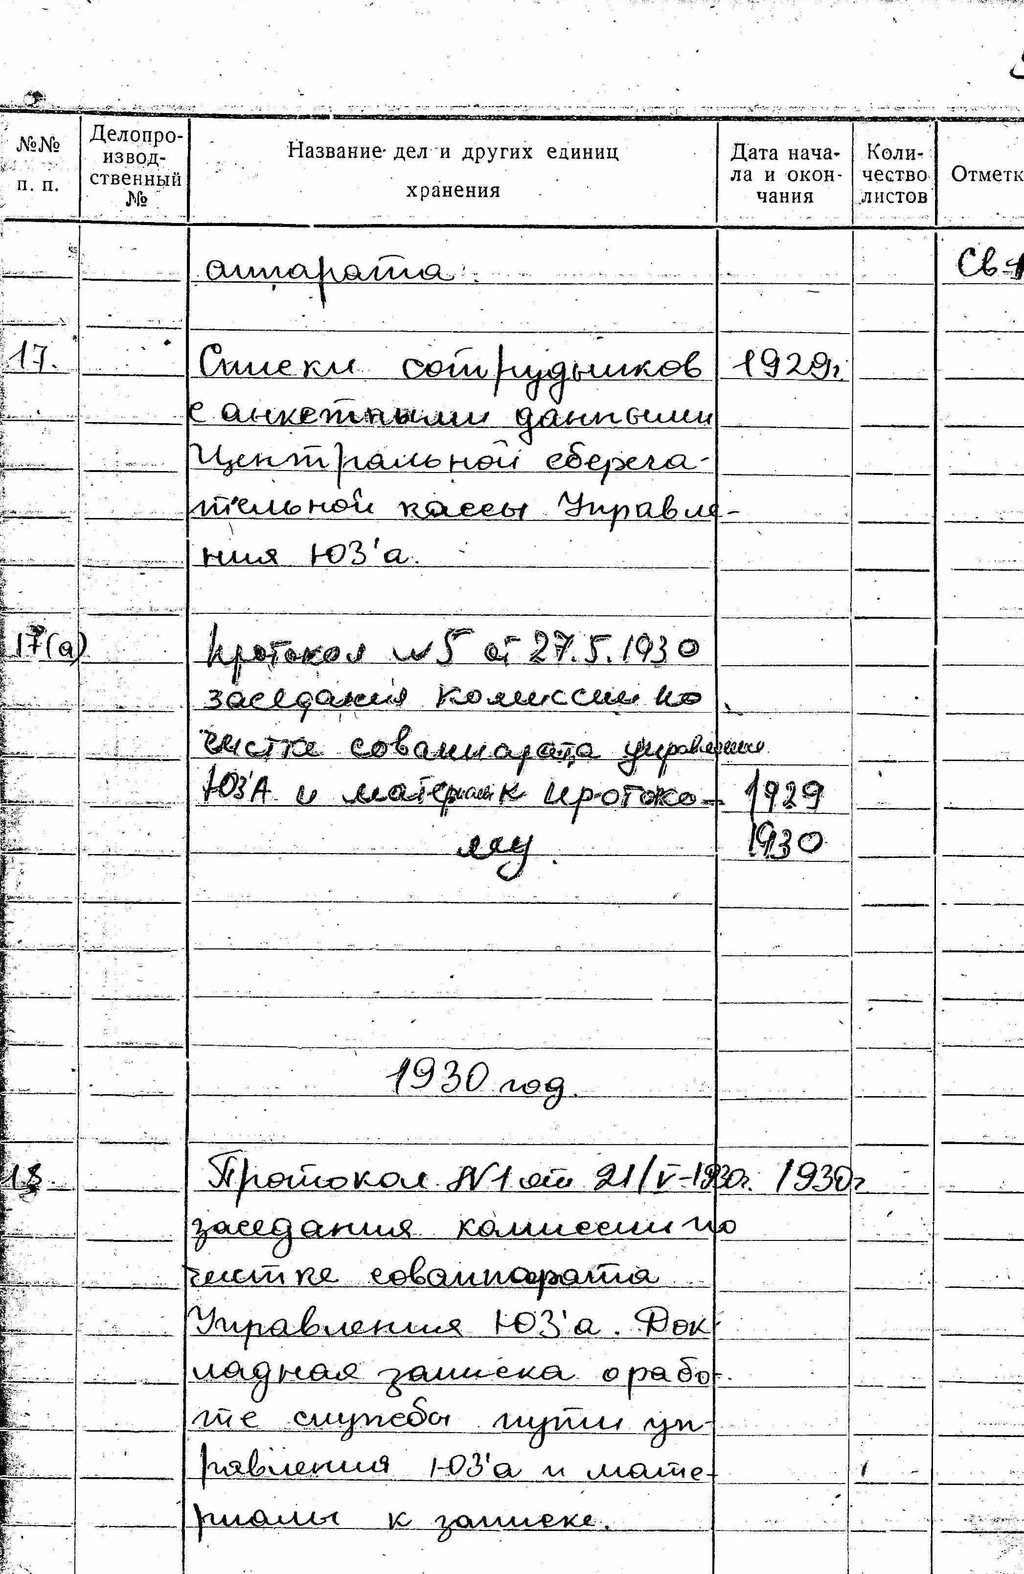 №№ п. п. Делопроизводственный № Название дел и других единиц хранения Дата начала и окончания Количество листов Отметк
аппарата. Св-1
17. Списки сотрудников 1929г.
с анкетными данными
Центральной сберега-
тельной кассы Управле-
ния ЮЗ'а.
17(а) Протокол №5 от 27.5.1930
заседания комиссии по
чистке соваппарата управления
ЮЗ'А и материал к протоко- 1929
лу. 1930
1930 год.
18. Протокол №1 от 21/V-1930г. 1930г
заседания комиссии по
чистке соваппарата
Управления ЮЗ'а. Док-
ладная записка о рабо-
те службы пути уп-
равления ЮЗ'а и мате-
риалы к записке.